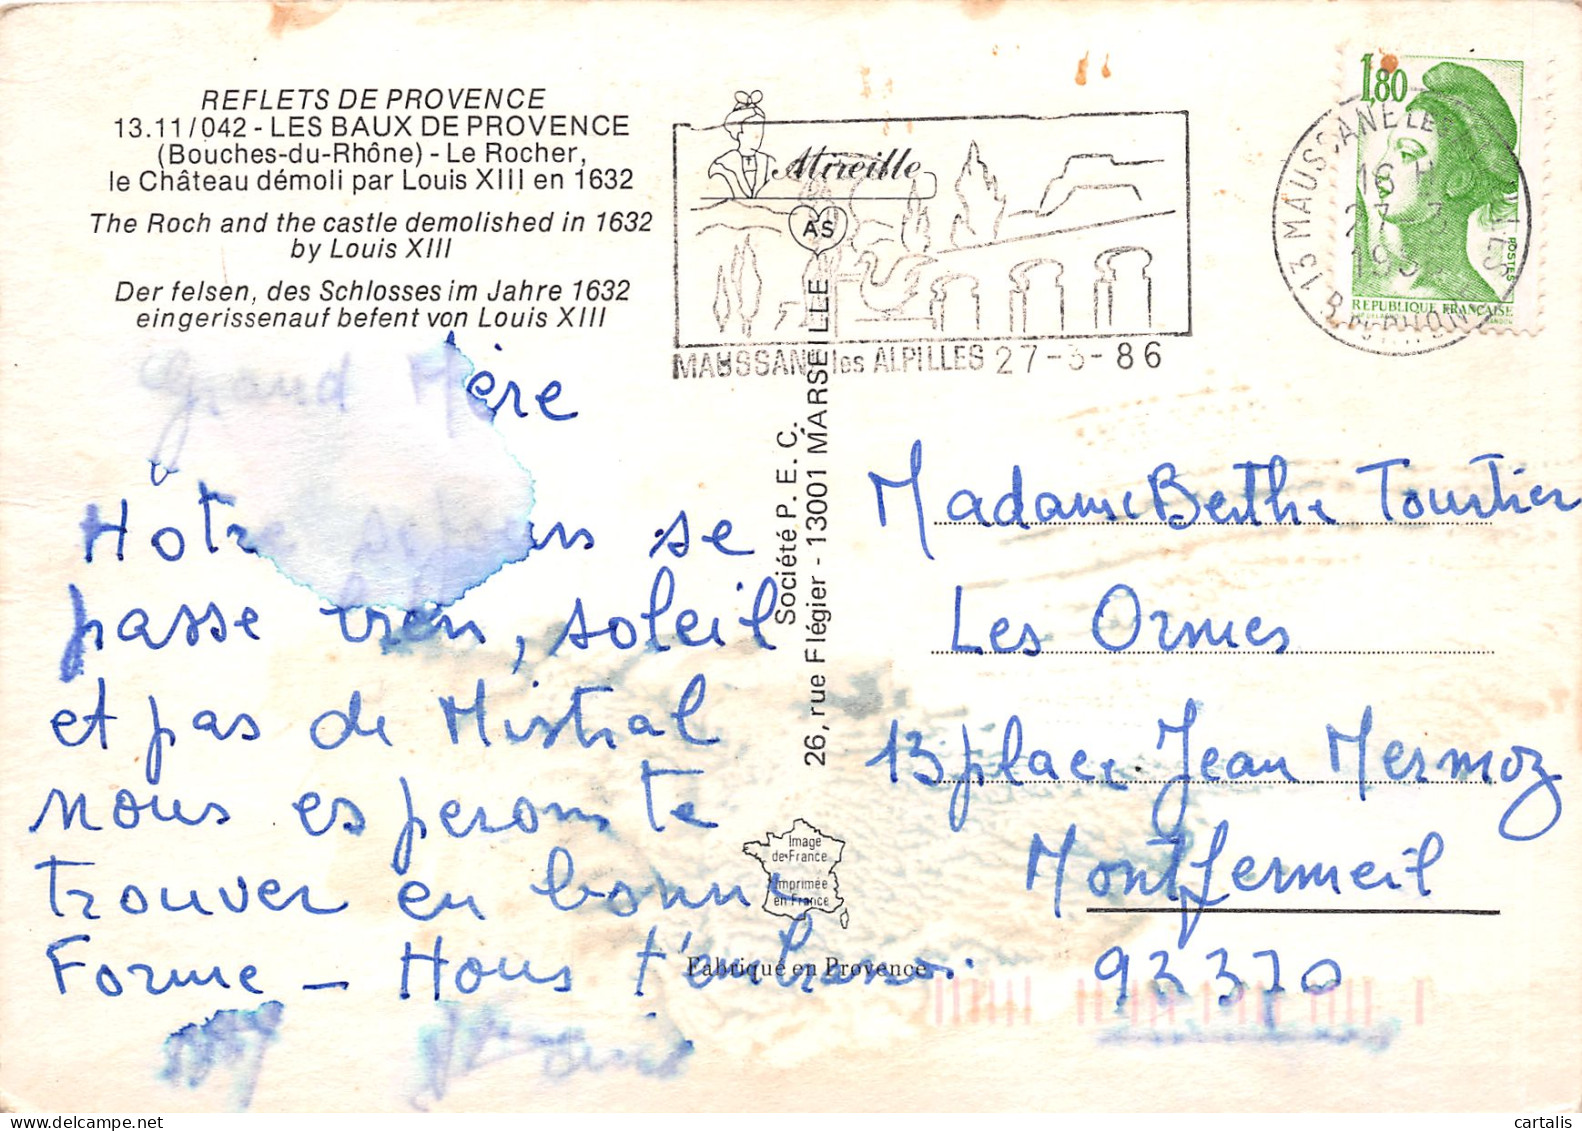 REFLETS DE PROVENCE
13.11/042 - LES BAUX DE PROVENCE
(Bouches-du-Rhône) - Le Rocher,
le Château démoli par Louis XIII en 1632
The Roch and the castle demolished in 1632
by Louis XIII
Der felsen, des Schlosses im Jahre 1632
eingerissenauf befent von Louis XIII
Grand Mère
Notre séjour se
passe très bien, soleil
et pas de Mistral
nous esperons te
trouver en bonne
Forme — Nous t'embrassons.
Mireille
AS
MAUSSANE les ALPILLES 27-3-86
Société P. E. C.
26, rue Flégier - 13001 MARSEILLE
Image
de France
Imprimée
en France
Fabriqué en Provence
1,80
POSTES
REPUBLIQUE FRANÇAISE
13 MAUSSANE LES ALPILLES
16 H
27 3
B. DU RHONE
Madame Berthe Tourtier
Les Ormes
13 place Jean Mermoz
Montfermeil
93370
cartalis